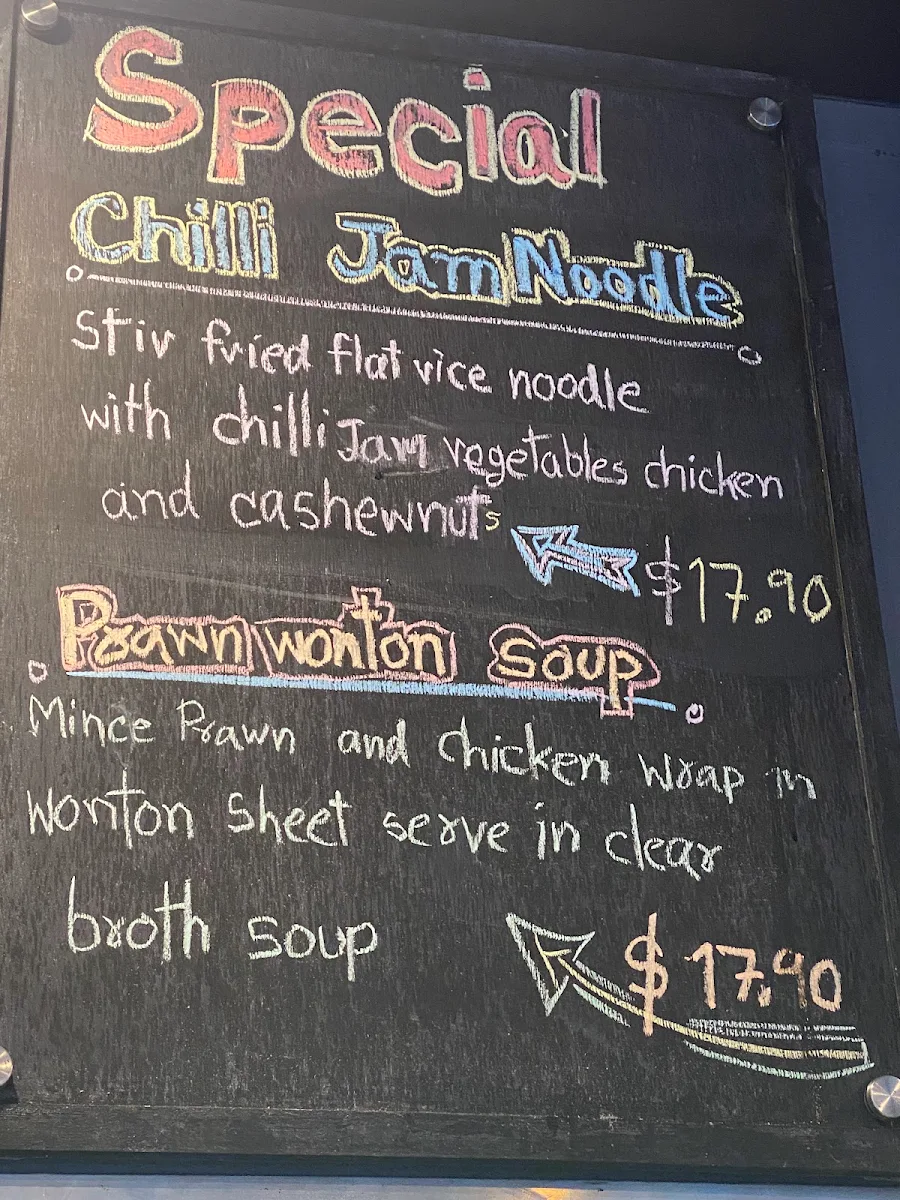 Special
Chilli Jam Noodle
Stir fried flat rice noodle
with chilli Jam vegetables chicken
and cashewnuts
$17.90
Prawn wonton soup
Mince Prawn and chicken wrap in
wonton sheet serve in clear
broth soup
$17.90